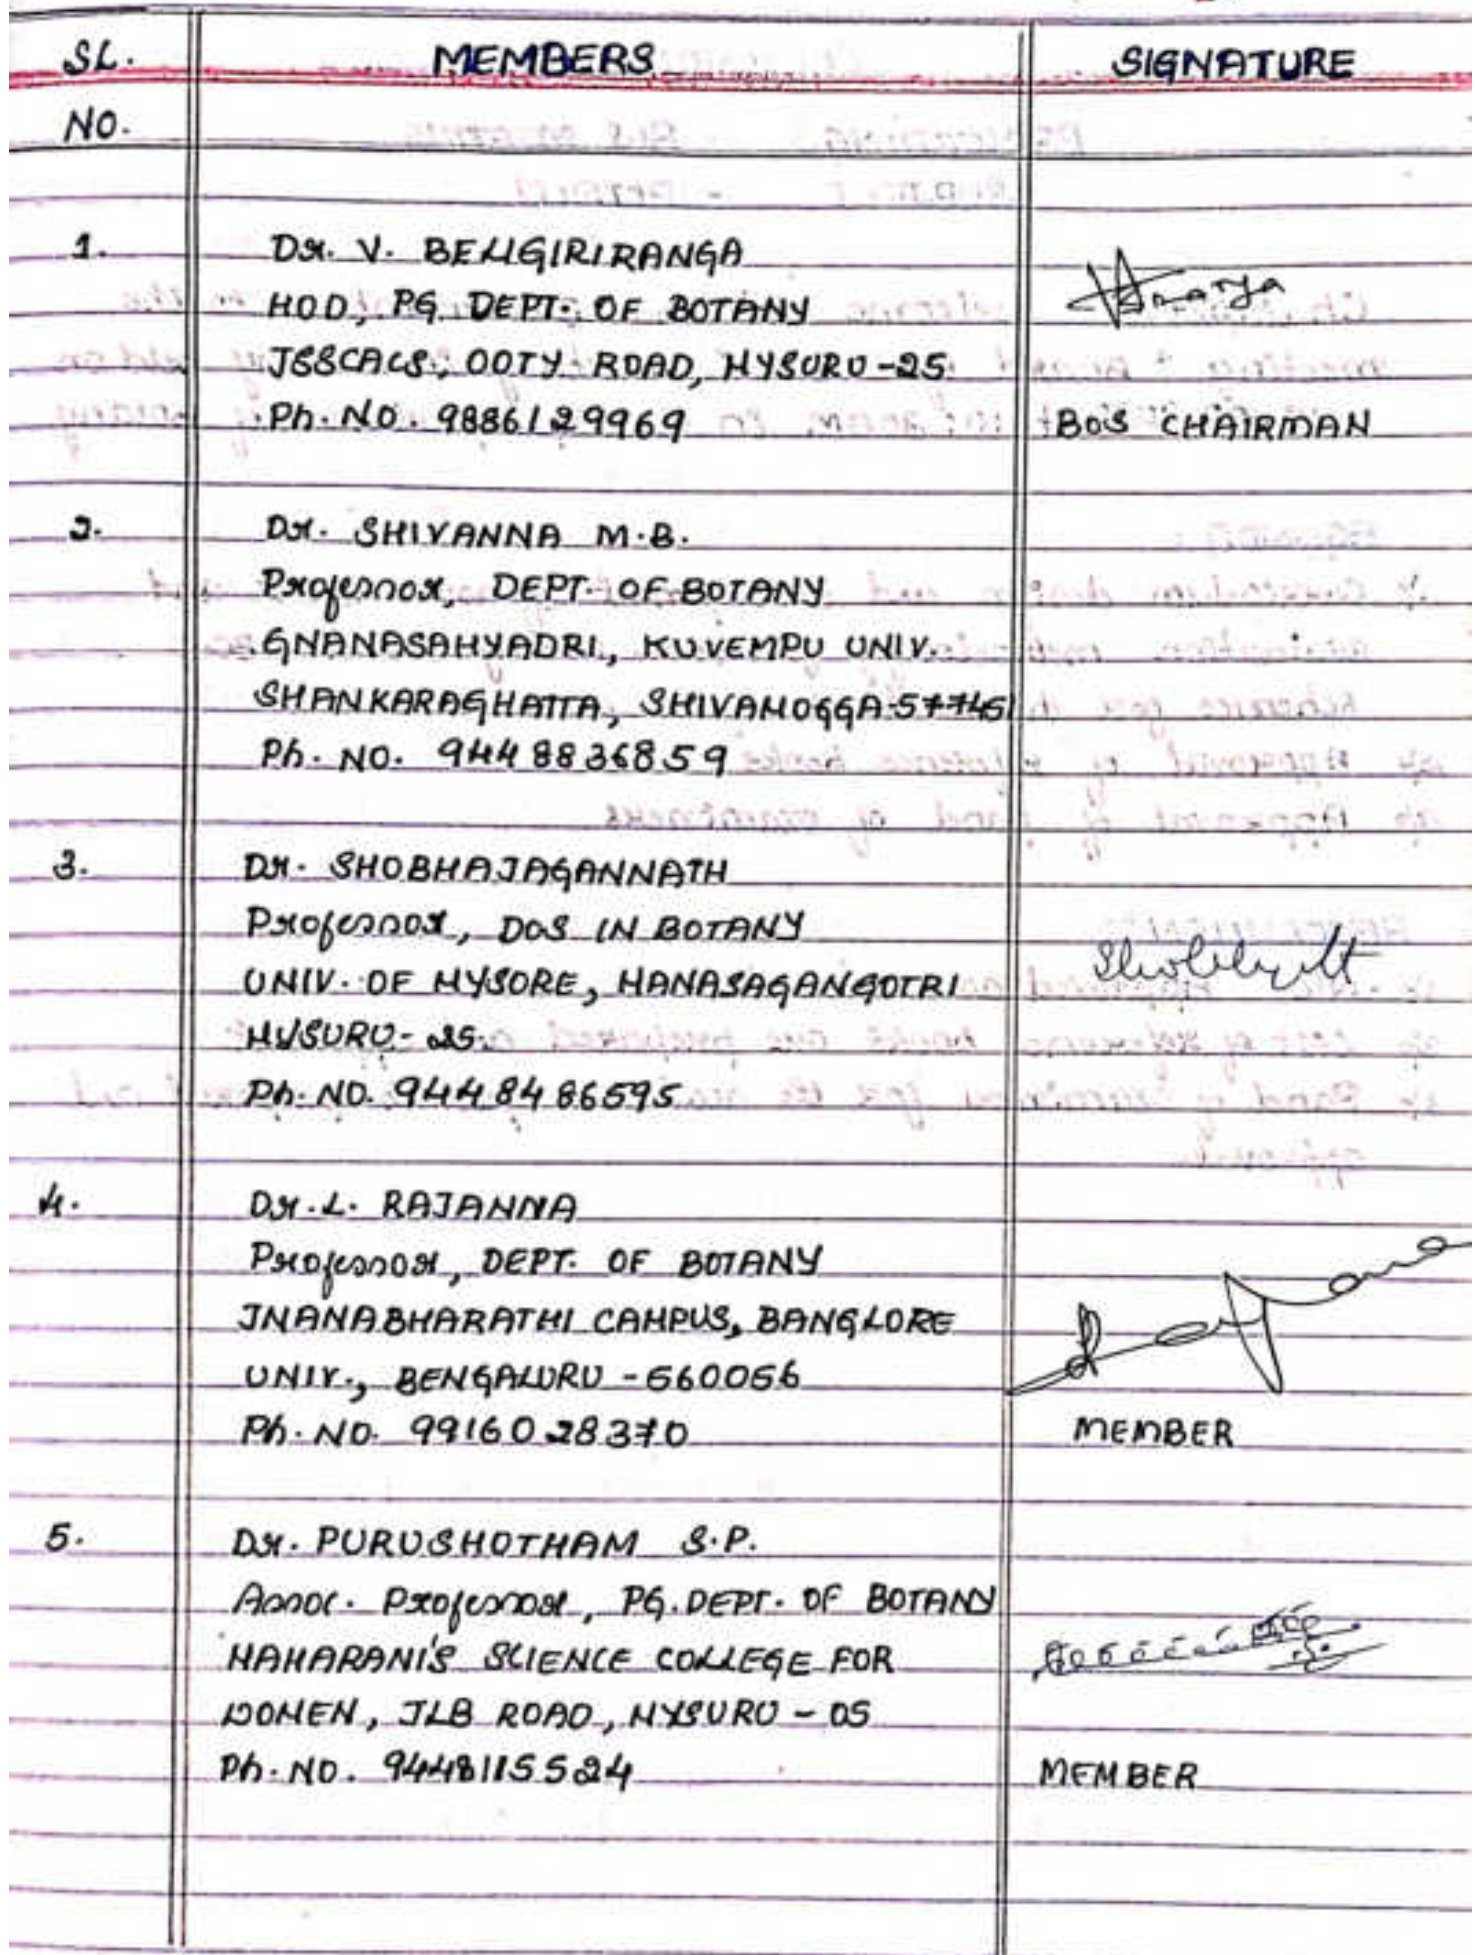 SL. MEMBERS SIGNATURE
NO.
1. Dr. V. BELIGIRIRANGA
HOD, PG DEPT. OF BOTANY
JSSCACS, OOTY ROAD, MYSURU-25
Ph. NO. 9886129969 BOS CHAIRMAN
2. Dr. SHIVANNA M.B.
Professor, DEPT. OF BOTANY
GNANASAHYADRI, KUVEMPU UNIV.
SHANKARAGHATTA, SHIVAMOGGA-577451
Ph. NO. 9448836859
3. Dr. SHOBHAJAGANNATH
Professor, DOS IN BOTANY
UNIV. OF MYSORE, MANASAGANGOTRI
MYSURU-25.
Ph. NO. 9448486595
4. Dr. L. RAJANNA
Professor, DEPT. OF BOTANY
JNANABHARATHI CAMPUS, BANGLORE
UNIV., BENGALURU -560056
Ph. NO. 9916028370 MEMBER
5. Dr. PURUSHOTHAM S.P.
Assoc. Professor, PG. DEPT. OF BOTANY
MAHARANI'S SCIENCE COLLEGE FOR
WOMEN, JLB ROAD, MYSURU - 05
Ph. NO. 9448115524 MEMBER